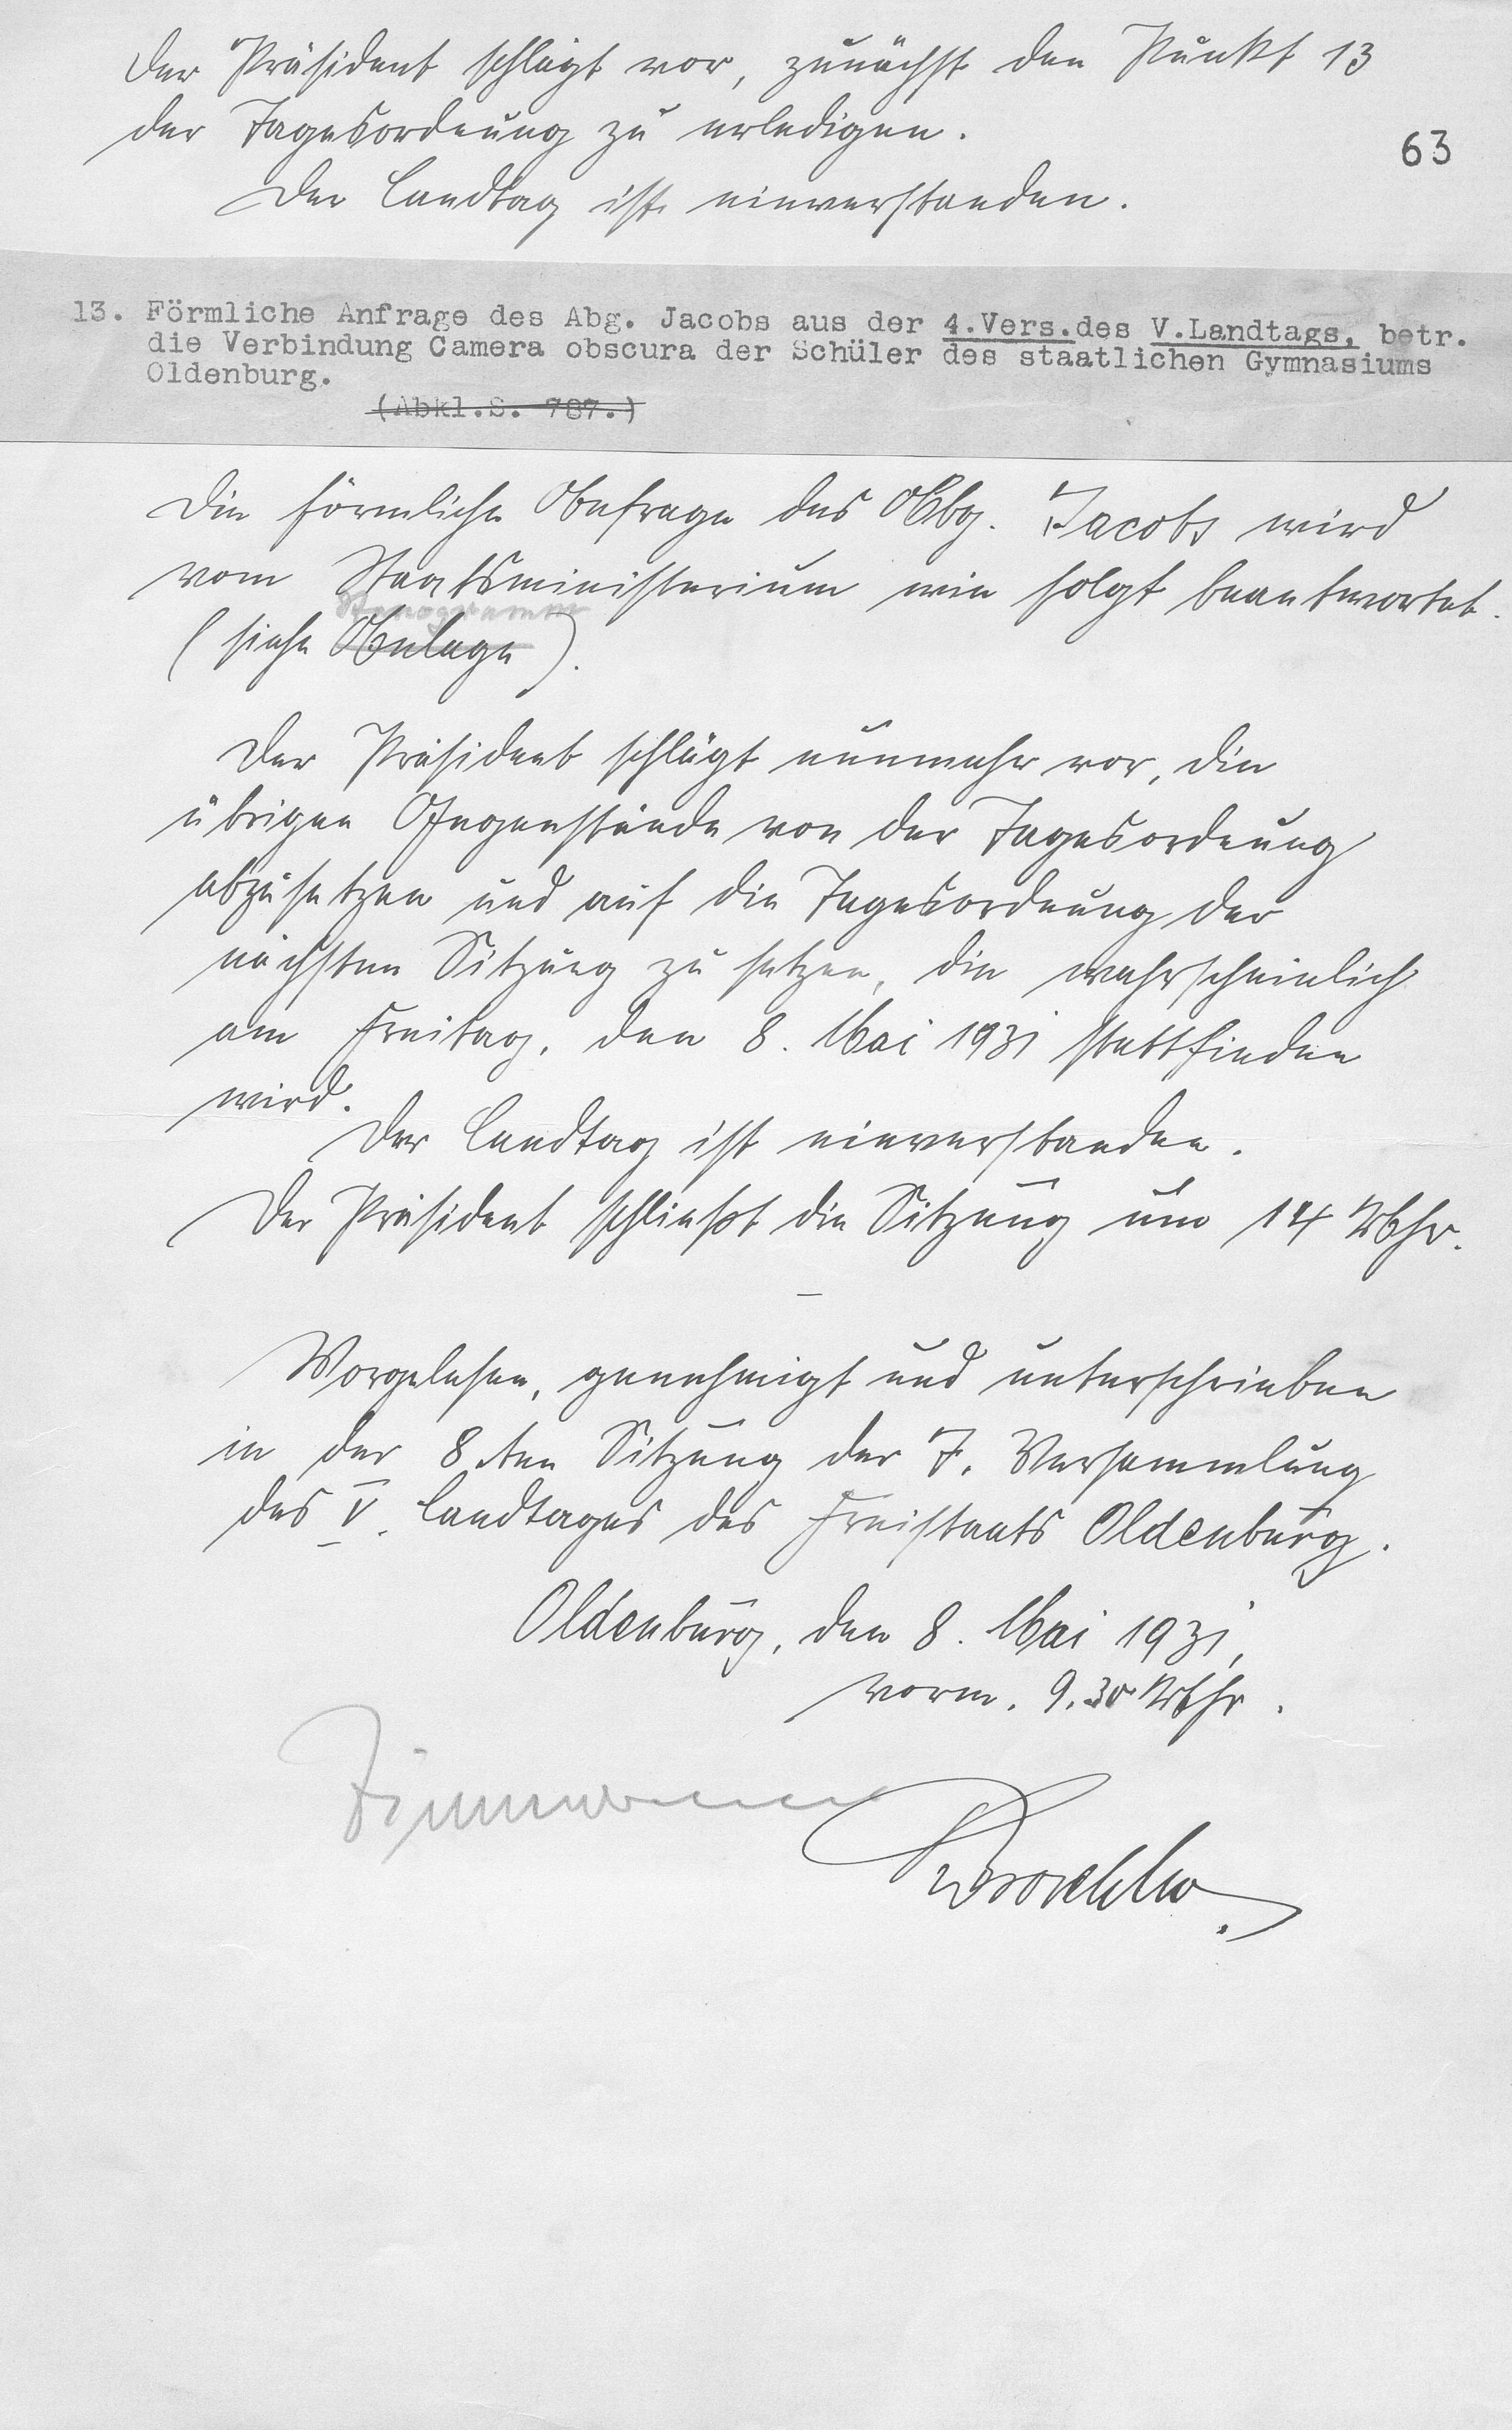 Der Präsident schlägt vor, zunächst den Punkt 13
der Tagesordnung zu erledigen.
63
Der Landtag ist einverstanden.
13. Förmliche Anfrage des Abg. Jacobs aus der 4.Vers.des V.Landtags, betr.
die Verbindung Camera obscura der Schüler des staatlichen Gymnasiums
Oldenburg.
(Abkl.S. 787.)
Die förmliche Anfrage des Abg. Jacobs wird
vom Staatsministerium wie folgt beantwortet.
Stenogramm
(siehe Anlage).
Der Präsident schlägt nunmehr vor, die
übrigen Gegenstände von der Tagesordnung
abzusetzen und auf die Tagesordnung der
nächsten Sitzung zu setzen, die wahrscheinlich
am Freitag, den 8. Mai 1931 stattfinden
wird.
Der Landtag ist einverstanden.
Der Präsident schließt die Sitzung um 14 Uhr.
Vorgelesen, genehmigt und unterschrieben
in der 8.ten Sitzung der 7. Versammlung
des V. Landtages des Freistaats Oldenburg.
Oldenburg, den 8. Mai 1931,
vorm. 9.30 Uhr.
Zimmermann